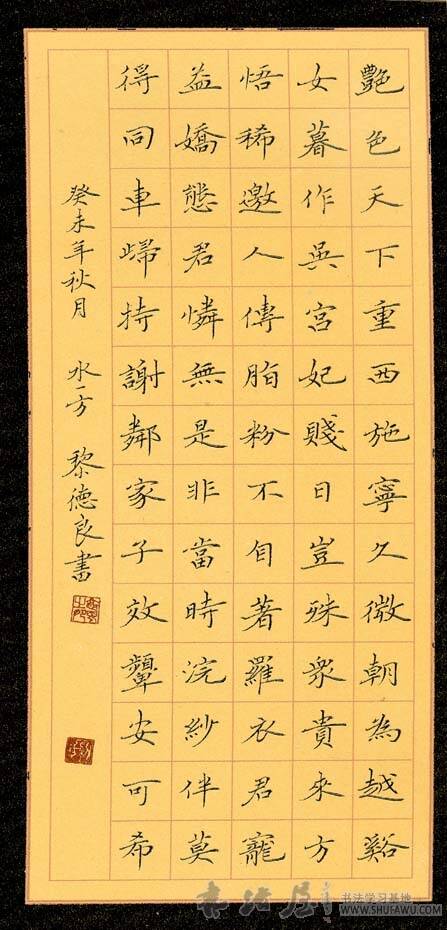 艷色天下重西施寧久微朝為越谿
女暮作吳宮妃賤日豈殊衆貴來方
悟稀邀人傳脂粉不自著羅衣君寵
益嬌態君憐無是非當時浣紗伴莫
得同車歸持謝鄰家子效顰安可希
癸未年秋月 水一方 黎德良書
书法屋
书法学习基地
WWW.SHUFAWU.COM